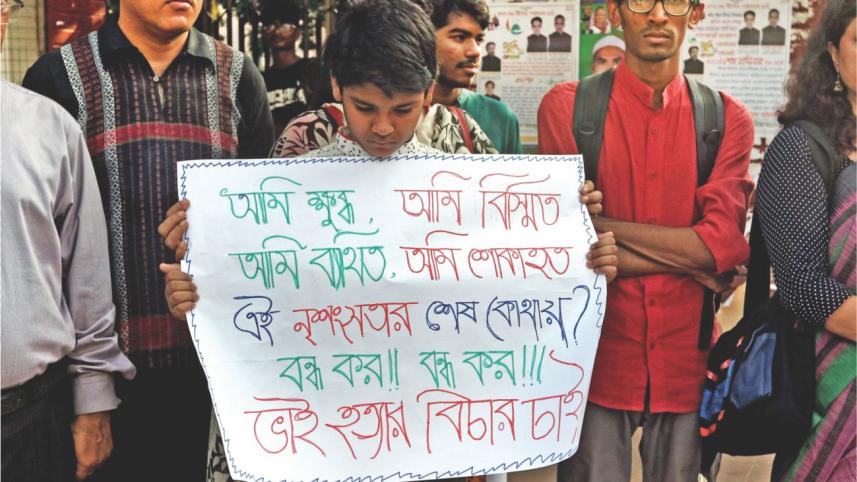 আমি ক্ষুব্ধ, আমি বিস্মিত
আমি ব্যথিত, আমি শোকাহত
এই নৃশংসতার শেষ কোথায়?
বন্ধ কর!! বন্ধ কর!!!
ভাই হত্যার বিচার চাই